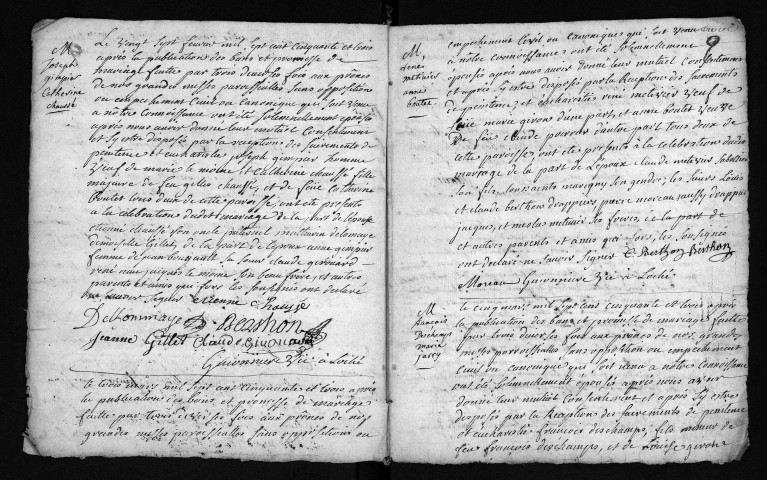 M
Joseph
Catherine
chaussé
Le vingt sept fevrier mil sept cent cinquante et trois
après la publication des bans et promesse de
mariage faitte par trois diverses fois aux prônes
de nos grandes messes paroissialles sans opposition
ou empechement Civil ou Canonique qui soit venu
a nôtre Connoissance ont été Solemnellement epousés
après nous avoir donné leur mutuel Consentement
et sy estre disposé par la reception des Sacrements de
penitence et eucharistie joseph homme
veuf de marie le moine et Catherine chaussé fille
majeure de feu gilles chaussé, et de feüe Catherine
boutet tous deux de cette paroisse, ont été presents
a la celebration dudit mariage de la part de l'epouse
etienne chaussé son oncle paternel
demoiselle Gillet, de la part de l'epoux anne
femme de jean sa soeur claude
rené jacques le moine son beau frère, et autres
parents et amis qui fors les soussignés ont declaré
ne sçavoir signer etienne Chausse
Delhommais Berthon
Jeanne Gillet Claude
Guionnière à Loché
Le trois mars mil sept cent cinquante et trois après
la publication des bans, et promesse de mariage
faitte par trois diverses fois aux prônes de nos
grandes messes paroissialles sans opposition ou
M,
rené
metivier
anne
boutet
empechement Civil ou canonique qui soit venu
a nôtre connoissance, ont été Solemnellement
epousés après nous avoir donné leur mutuel Consentement
et après sy estre disposé par la Reception des Sacrements
de penitence, et eucharistie rené metivier veuf de
feüe marie girons d'une part, et anne boutet veuve
de feu claude d'autre part tous deux de
cette paroisse, ont été presents a la celebration dudit
mariage de la part de l'epoux claude metivier
son fils, toussaints marigny son gendre, les sieurs Louis
et claude berthon pierre moreau
jacques, et nicolas metivier ses frères, de la part de
et autres parents et amis qui fors, les soussignés
ont declaré ne sçavoir signer C Berthon Berthon
Moreau Guionnière à Loché
M
francois
Deschamps
marie
Le cinq mars, mil sept cent cinquante et trois après
la publication des bans et promesse de mariage faitte
par trois diverses fois aux prones de nos grandes
messes parroissialles sans opposition ou empechement
Civil ou canonique qui soit venu a notre connoissance
ont été Solemnellement epousés après nous avoir
donné leur mutuel Consentement et après sy estre
disposé par la Reception des Sacrements de penitence
et eucharistie francois deschamps, fils mineur de
feu francois deschamps, et de